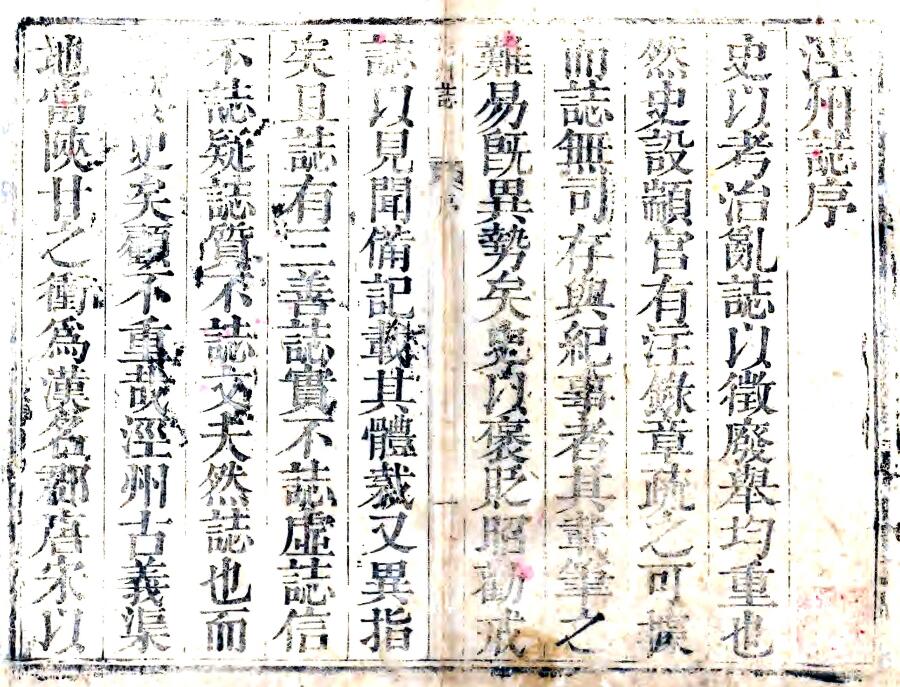 涇州誌序
史以考治亂誌以徵廢舉均重也
然史設顓官有注錄章疏之可據
而誌無司存與紀事者其載筆之
難易旣異勢矣史以褒貶昭勸戒
州誌 序 一
誌以見聞備記載其體裁又異指
矣且誌有三善誌實不誌虛誌信
不誌疑誌質不誌文夫然誌也而
史矣顧不重哉涇州古義渠
地當陝甘之衝爲漢名郡唐宋以